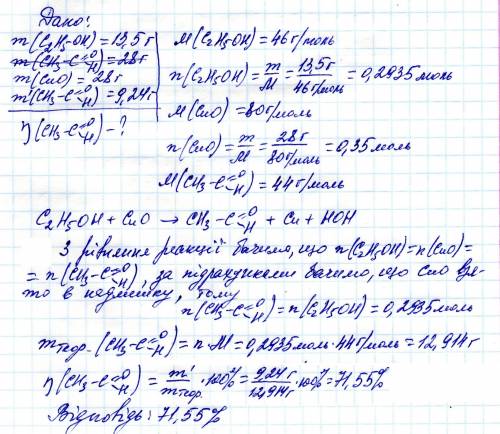 Дано:
m(C₂H₅-OH)=13,5г
m(CuO)=28г
m'(CH₃-C=O H)=9,24г
η(CH₃-C=O H)-?
M(C₂H₅OH)=46г/моль
n(C₂H₅OH)=m/M=13,5г/46г/моль=0,2935моль
M(CuO)=80г/моль
n(CuO)=m/M=28г/80г/моль=0,35моль
M(CH₃-C=O H)=44г/моль
C₂H₅OH+CuO → CH₃-C=O H + Cu + HOH
З рівняння реакції бачимо, що n(C₂H₅OH)=n(CuO)=
=n(CH₃-C=O H), за підрахунками бачимо, що CuO взя-
то в надлишку, тому
n(CH₃-C=O H)=n(C₂H₅OH)=0,2935моль
mтеор.(CH₃-C=O H)=n·M=0,2935моль·44г/моль=12,914г
η(CH₃-C=O H)=m'/mтеор.·100%=9,24г/12,914г·100%=71,55%
Відповідь: 71,55%